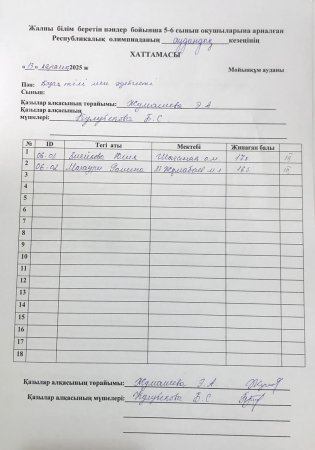 Жалпы білім беретін пәндер бойынша 5-6 сынып оқушыларына арналған
Республикалық олимпиаданың аудандық кезеңінің
ХАТТАМАСЫ
«13» 2025 ж Майлықұм ауданы
Пән: тілі мен әдебиеті
Сынып:
Қазылар алқасының төрайымы: Жумашева Э.А
Қазылар алқасының
мүшелері: Б.С
№ ID Тегі аты Мектебі Жинаған балы
1 06-01 17б III
2 06-02 16б III
3
4
5
6
7
8
9
10
11
12
13
14
15
16
17
18
Қазылар алқасының төрайымы: Жумашева Э.А
Қазылар алқасының мүшелері: Б.С